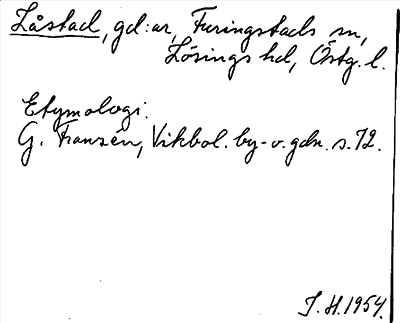 Låstad, gd:ar, Furingstads sn,
Lösings hd, Östg. l.
Etymologi.
G. Franzén, Vikbol. by- o. gdn. s. 72.
J. H. 1954.